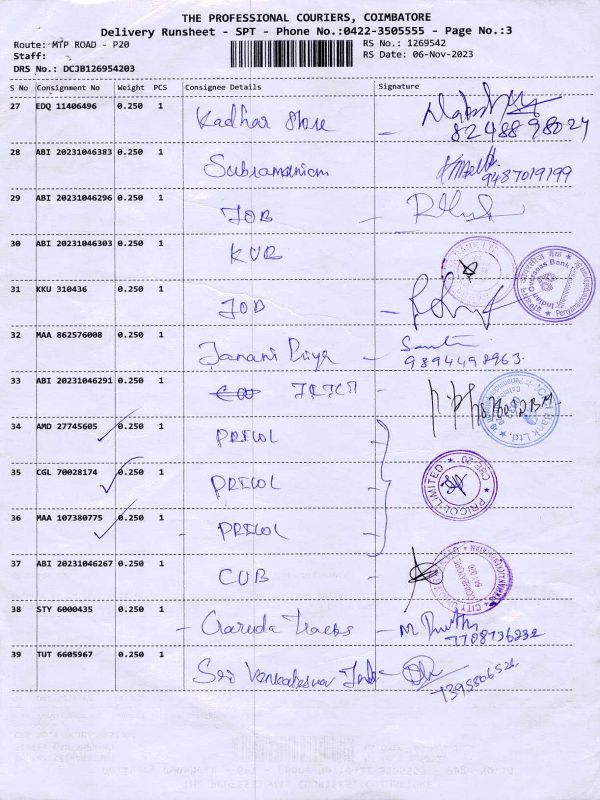 THE PROFESSIONAL COURIERS, COIMBATORE
Delivery Runsheet - SPT - Phone No.:0422-3505555 - Page No.:3
Route: MTP ROAD - P20 RS No.: 1269542
Staff: RS Date: 06-Nov-2023
DRS No.: DCJB126954203
S No Consignment No Weight PCS Consignee Details Signature
27 EDQ 11406496 0.250 1 Kadhar Store
8248898024
28 ABI 20231046383 0.250 1 Subramaniam
9487019199
29 ABI 20231046296 0.250 1 IOB
30 ABI 20231046303 0.250 1 KVB
31 KKU 310436 0.250 1 IOB
32 MAA 862576008 0.250 1 Janani Priya
9894498963
33 ABI 20231046291 0.250 1
34 AMD 27745605 0.250 1 PRICOL
35 CGL 70028174 0.250 1 PRICOL
PRICOL LIMITED CBE-20
36 MAA 107380775 0.250 1 PRICOL
37 ABI 20231046267 0.250 1 CUB
38 STY 6000435 0.250 1 Garuda Tracks
7708736232
39 TUT 6605967 0.250 1 Sri Venkateswa